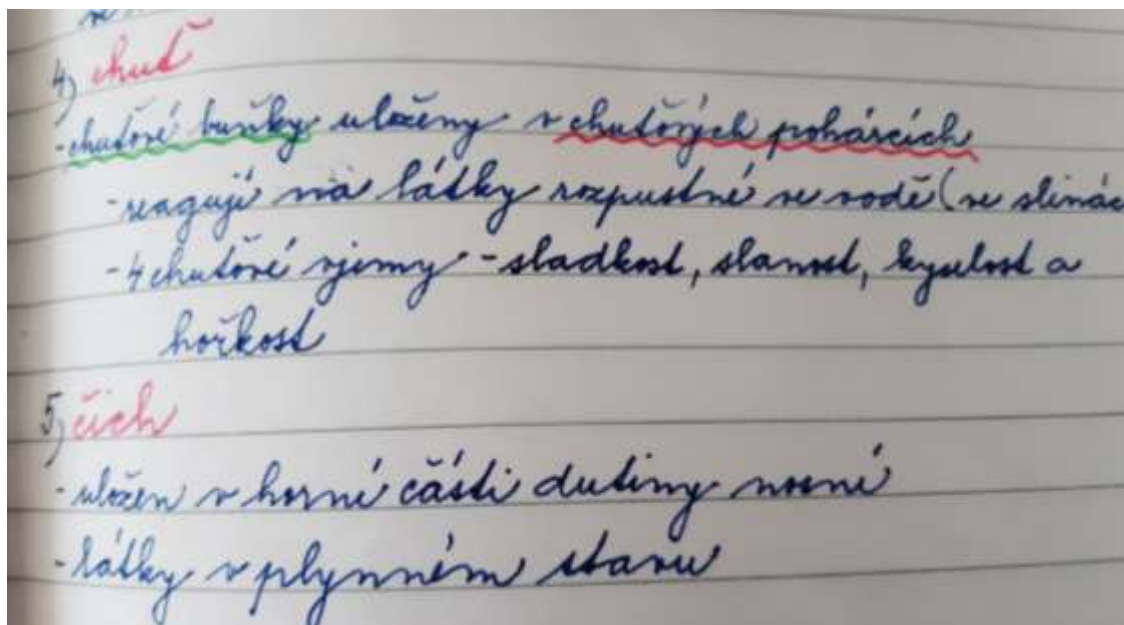 4) chuť
- chuťové buňky uloženy v chuťových pohárcích
- reagují na látky rozpustné ve vodě (ve slinác
- 4 chuťové vjemy - sladkost, slanost, kyselost a
hořkost
5) čich
- uložen v horní části dutiny nosní
- látky v plynném stavu